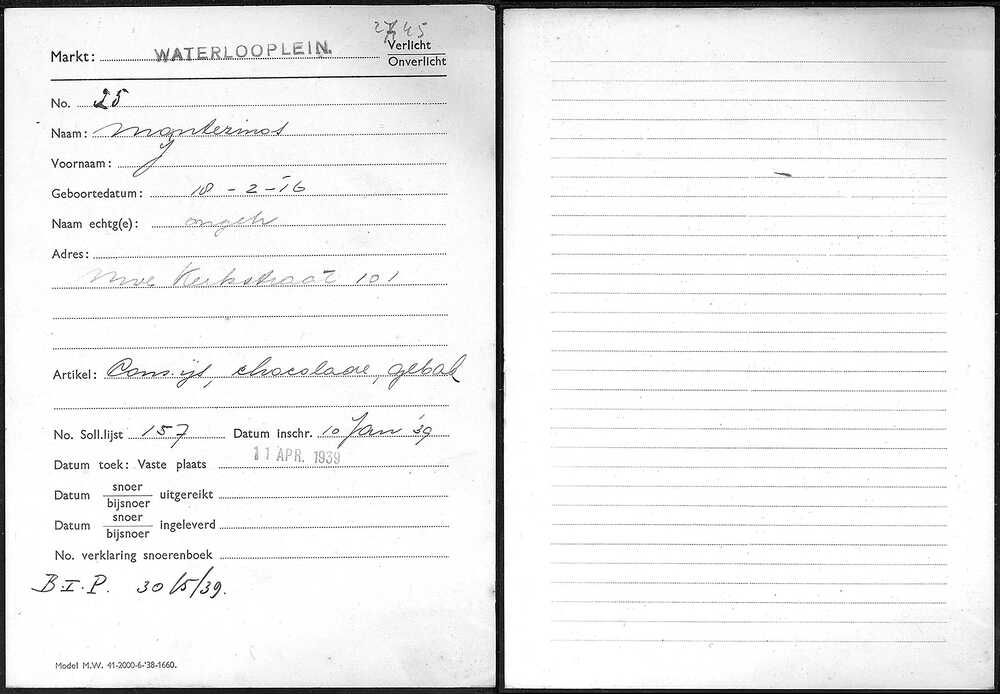 Markt: WATERLOOPLEIN.
Verlicht
Onverlicht
No. 25
Naam: Monterinos
Voornaam: J
Geboortedatum: 18-2-'16
Naam echtg(e): ongeh
Adres:
Nwe Kerkstraat 101
Artikel: Cons. ijs, chocolade, gebak
No. Soll.lijst 157 Datum inschr. 10 Jan '39
Datum toek: Vaste plaats 11 APR. 1939
Datum snoer/bijsnoer uitgereikt
Datum snoer/bijsnoer ingeleverd
No. verklaring snoerenboek
B.I.P. 30/5/39.
Model M.W. 41-2000-6-'38-1660.